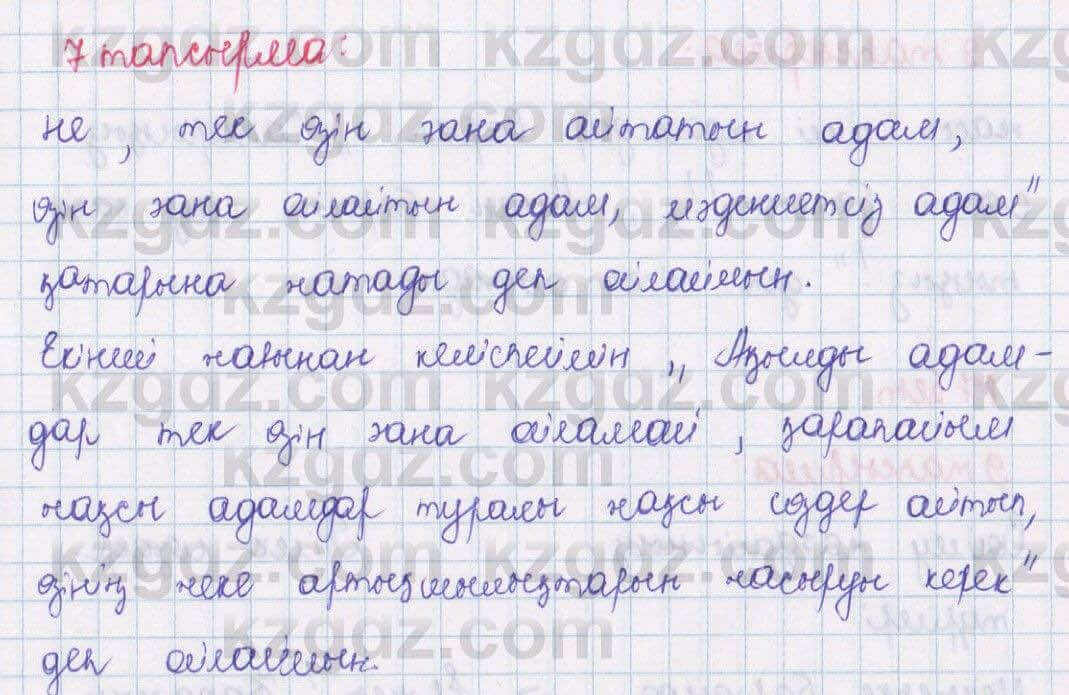 7 тапсырма:
не, тек өзін ғана айтатын адам,
өзін ғана ойлайтын адам, мәдениетсіз адам"
қатарына жатады деп ойлаймын.
Екінші жағынан келіспеймін „Ақылды адам-
дар тек өзін ғана ойламай, қарапайым
жақсы адамдар туралы жақсы сөздер айтып,
өзінің жеке артықшылықтарын жасыруы керек"
деп ойлаймын.
kzgdz.com